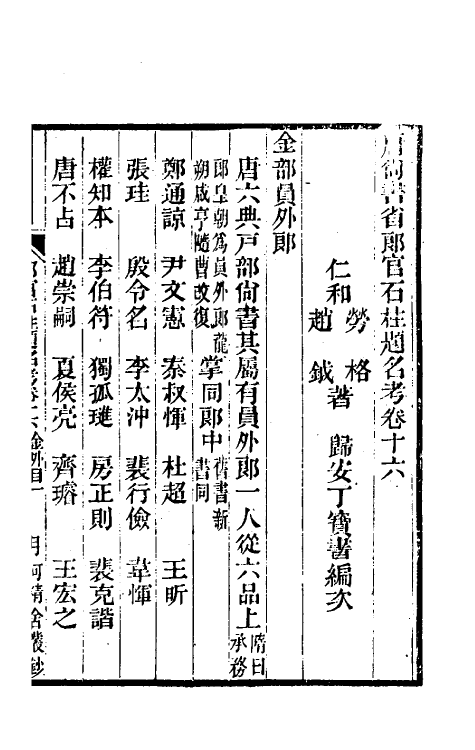 唐尚書省郎官石柱題名考卷十六
仁和 勞格 趙鉞 著 歸安丁寶書編次
金部員外郎
唐六典戸部尚書其屬有員外郎一人從六品上隋曰承務
郎皇朝爲員外郎龍朔咸亨隨曹改復掌同郎中舊書新書同
鄭通諒 尹文憲 泰叔惲 杜超 王昕
張珪 殷令名 李太沖 裴行儉 韋惲
權知本 李伯符 獨孤璡 房正則 裴克諧
唐不占 趙崇嗣 夏侯亮 齊璿 王宏之
郎官石柱題名考卷十六金外目一 月河精舍叢鈔